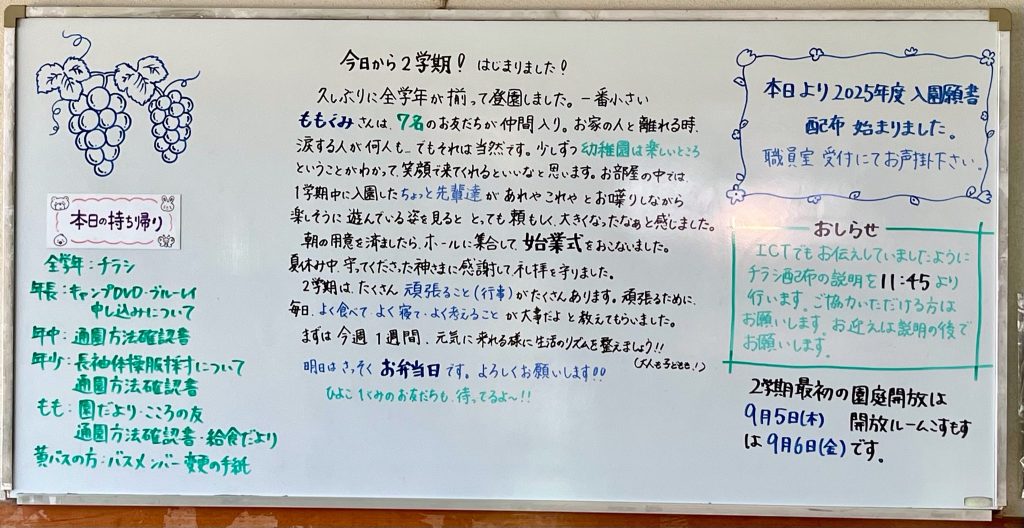 本日の持ち帰り
全学年:チラシ
年長:キャンプDVD・ブルーレイ
申し込みについて
年中:通園方法確認書
年少:長袖体操服採寸について
通園方法確認書
もも:園だより・こころの友
通園方法確認書・給食だより
黄バスの方:バスメンバー変更の手紙
今日から2学期! はじまりました!
久しぶりに全学年が揃って登園しました。一番小さい
ももぐみさんは、7名のお友だちが仲間入り。お家の人と離れる時、
涙する人が何人も…でもそれは当然です。少しずつ幼稚園は楽しいところ
ということがわかって、笑顔で来てくれるといいなと思います。お部屋の中では、
1学期中に入園したちょっと先輩達があれやこれやとお喋りしながら
楽しそうに遊んでいる姿を見ると とっても頼もしく、大きくなったなぁと感じました。
朝の用意を済ましたら、ホールに集合して、始業式をおこないました。
夏休み中、守ってくださった神さまに感謝して礼拝を守りました。
2学期は、たくさん 頑張ること(行事)がたくさんあります。頑張るために、
毎日、よく食べて、よく寝て、よく考えること が大事だよ と教えてもらいました。
まずは今週1週間、元気に来れる様に生活のリズムを整えましょう!!
(大人も子どもも!)
明日はさっそく お弁当日です。よろしくお願いします!!
ひよこ1くみのお友だちも、待ってるよ〜!!
本日より2025年度 入園願書
配布 始まりました。
職員室 受付にてお声掛下さい。
おしらせ
ICTでもお伝えしていましたように
チラシ配布の説明を11:45より
行います。ご協力いただける方は
お願いします。お迎えは説明の後で
お願いします。
2学期最初の園庭開放は
9月5日(木) 開放ルームこすもす
は9月6日(金)です。